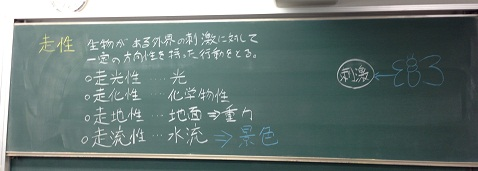 走性 生物がある外界の刺激に対して
一定の方向性を持った行動をとる。
○走光性 … 光
○走化性 … 化学物性
○走地性 … 地面⇒重力
○走流性 … 水流 ⇒ 景色
刺激